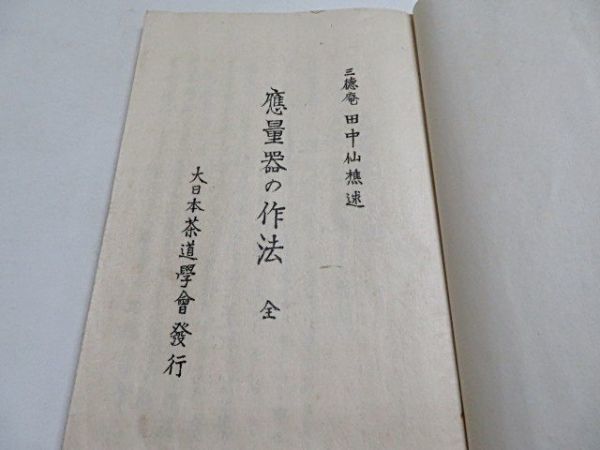 三德庵 田中仙樵述
應量器の作法 全
大日本茶道學會發行